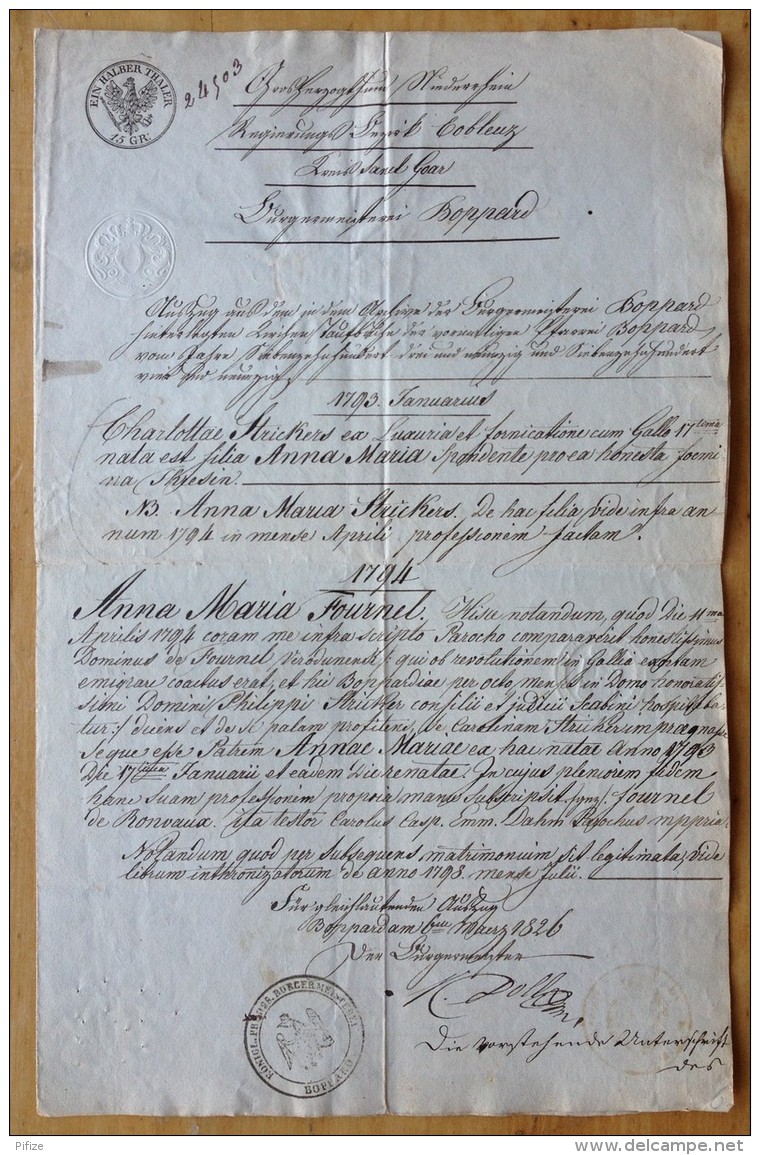 EIN HALBER THALER
15 GR:
24503
Grosherzogthum Niederrhein
Regierungs Bezirk Coblenz
Kreis Sanct Goar
Bürgermeisterei Boppard
Auszug aus dem in dem Archive der Bürgermeisterei Boppard
hinterlegten Kirchen Taufbuche der vormaligen Pfarrei Boppard
vom Jahre Siebenzehnhundert drei und neunzig und Siebenzehnhundert
vier und neunzig.
1793. Januarius
Charlottae Strickers ex Luxuria et fornicatione cum Gallo 17tema
nata est filia Anna Maria Spondente pro ea honesta foemi
na Thresin.
NB. Anna Maria Strickers. De hac filia vide infra an
num 1794 in mense Aprili professionem factam.
1794
Anna Maria Fournel. Hisce notandum, quod Die 11ma
Aprilis 1794 coram me infra scripto Parocho comparaverit honestissimus
Dominus de Fournel Virodunensis qui ob revolutionem in Gallia exortam
emigrare coactus erat, et hic Boppardiae per octo menses in Domo honoratis
simi Domini Philippi Stricker consilii et judicii Scabini hospitaba
tur:/ dicens et de se palam profitens, se Carolinam Stricker impraegnasse
Seque esse Patrem Annae Mariae ex hac natae anno 1793
Die 17 Januarii et eadem Die renatae. In cujus pleniorem fidem
hanc suam professionem propria manu Subscripsit sgnz/. Fournel
de Ronvaux. Ita testor Carolus Casp. Emm. Dahm Parochus mppria.
Notandum quod per subsequens matrimonium sit legitimata, vide
librum inthronizatorum de anno 1798. mense Julii.
Für gleichlautenden Auszug
Boppard am 6ten Maerz 1826
Der Bürgermeister
KÖNIGL. PREUSS. BÜRGERMEISTEREI
BOPPARD
Die vorstehende Unterschrift
des
Pifize
www.delcampe.net